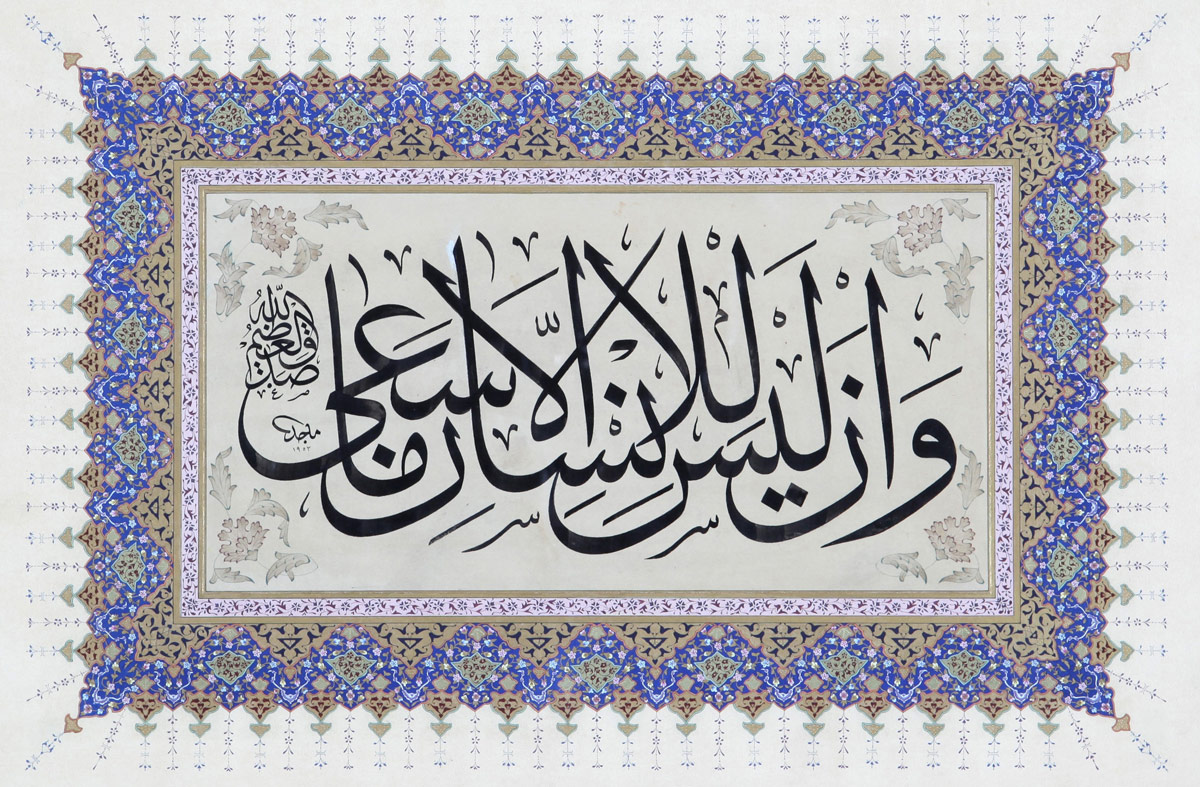 وَأَنْ لَيْسَ لِلْإِنْسَانِ إِلَّا مَا سَعَى
صدق الله العظيم
ماجد
١٩٥٣